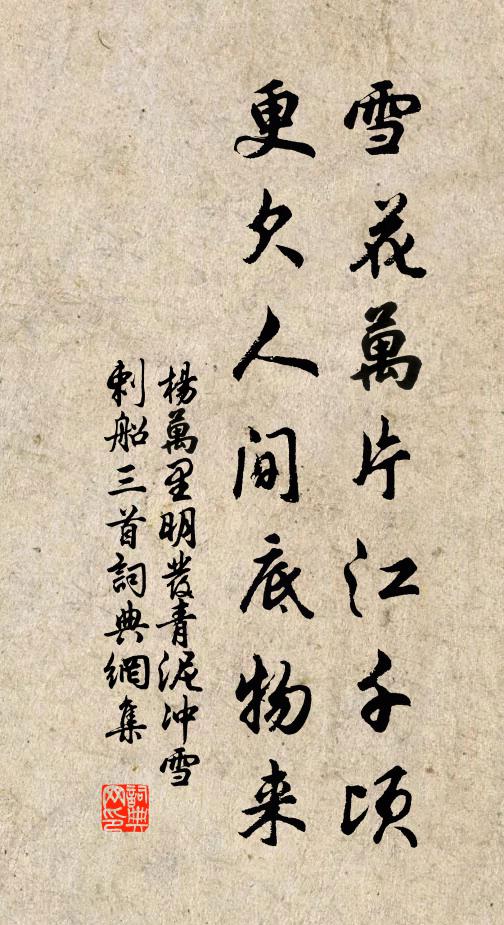 雪花萬片江千頃
更欠人間底物来
楊萬里明發青泥冲雪
刺船三首詞典網集
詞典
网印